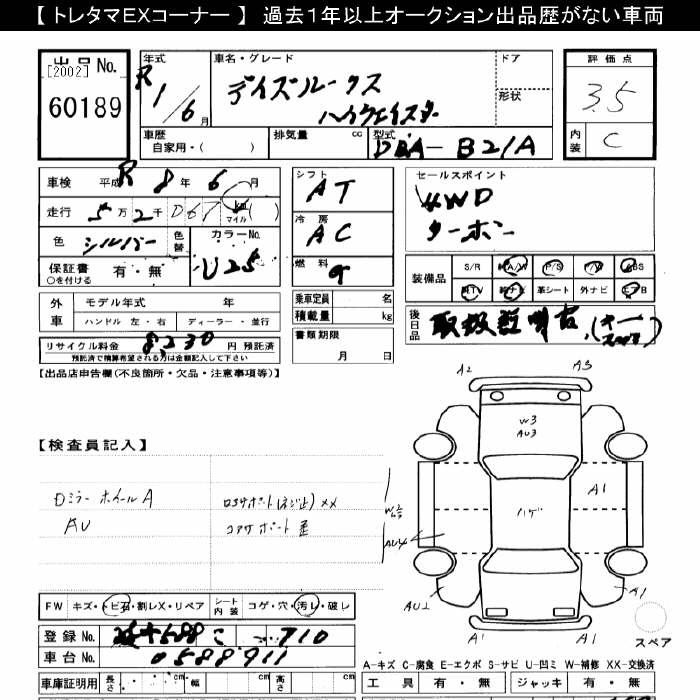 【 トレタマEXコーナー 】 過去1年以上オークション出品歴がない車両
出品 No.
[2002]
60189
年式
R 1/6 月
車名・グレード
デイズルークス
ハイウェイスター
ドア
形状
評価点
3.5
内装
C
車歴
自家用・( )
排気量 cc
型式
DBA-B21A
車検 平成 R 8 年 6 月
走行 5 万 2 千 067 km マイル ( )
色 シルバー
色替
カラーNo.
U25
保証書 有・無
○を付ける
シフト
AT
冷房
AC
燃料
g
セールスポイント
4WD
ターボ
装備品 S/R A/W P/S P/W ABS
純TV 純ナビ 革シート 外ナビ エアB
外車 モデル年式 年
ハンドル 左・右 ディーラー・並行
乗車定員 名
積載量 kg
リサイクル料金 8,230 円 預託済
預託済で精算希望される方は金額記入して下さい
書類期限
月 日
後日品 取扱説明書
【出品店申告欄(不良箇所・欠品・注意事項等)】
【検査員記入】
Dミラー ホイールA
AU
コアサポート
A2
A3
W3
AU3
A1
ハゲ
AU4
AU2
A1
A1
A1
スペア
FW キズ・トビ石・割レX・リペア シート内装 コゲ・穴・汚レ・破レ
登録 No. 588 こ 710
車台 No. 0588911
A-キズ C-腐食 E-エクボ S-サビ U-凹ミ W-補修 XX-交換済
車庫証明用 長さ cm 幅 cm 高さ cm
工具 有・無 ジャッキ 有・無